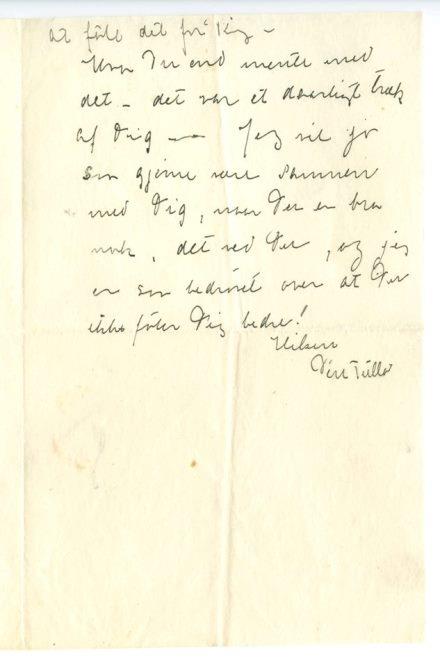 at føle det for Dig –
Hvad Du end mente med
det – det var et daarligt træk
af Dig — Jeg vil jo
saa gjerne være sammen
med Dig, naar Du er bra
nok, det ved Du, og jeg
er saa bedrøvet over at Du
ikke føler Dig bedre!
Hilsen
Din Tulla